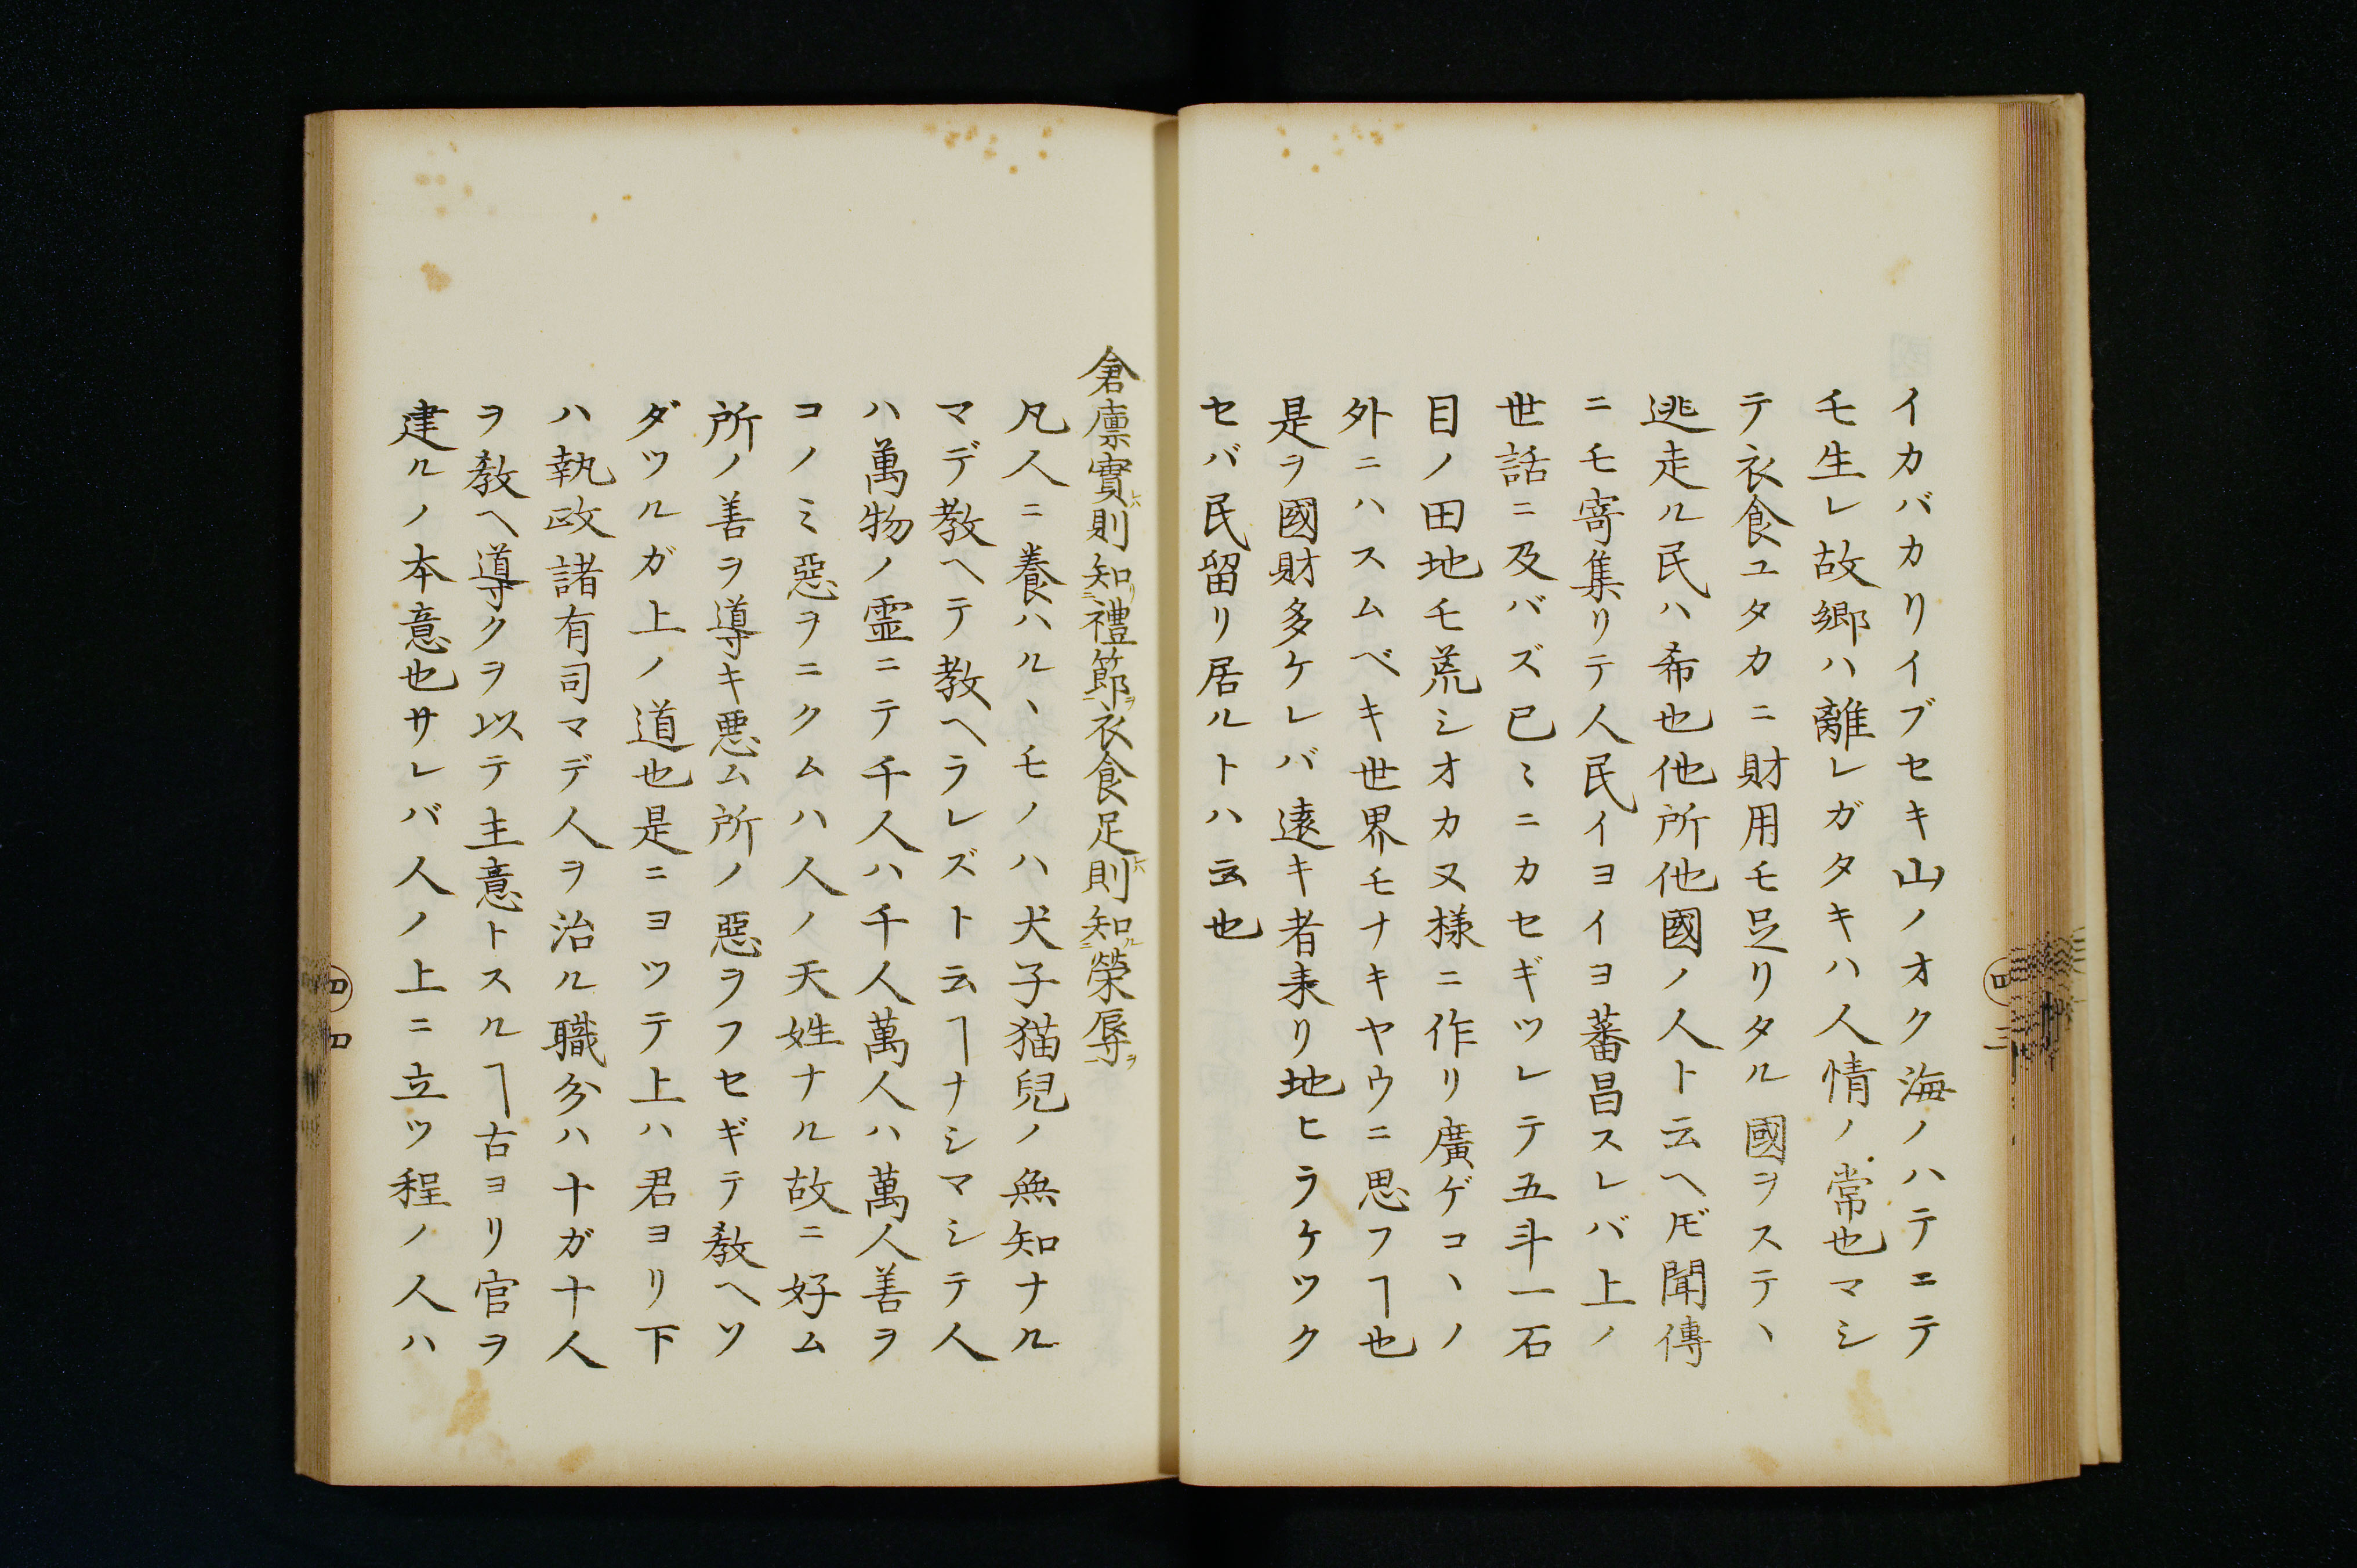 イカバカリイブセキ山ノオク海ノハテニテ
モ生レ故郷ハ離レガタキハ人情ノ常也マシ
テ衣食ユタカニ財用モ足リタル國ヲステヽ
逃走ル民ハ希也他所他國ノ人ト云ヘ𪜈聞傳
ニモ寄集リテ人民イヨイヨ蕃昌スレバ上ノ
世話ニ及バズ已ミニカセギツレテ五斗一石
目ノ田地モ荒シオカヌ様ニ作リ廣ゲコヽノ
外ニハスムベキ世界モナキヤウニ思フヿ也
是ヲ國財多ケレバ遠キ者来リ地ヒラケツク
セバ民留リ居ルトハ云也
倉廩實則知禮節衣食足則知榮辱
凡人ニ養ハルヽモノハ犬子猫兒ノ無知ナル
マデ教ヘテ教ヘラレズト云ヿナシマシテ人
ハ萬物ノ霊ニテ千人ハ千人萬人ハ萬人善ヲ
コノミ惡ヲニクムハ人ノ天姓ナル故ニ好ム
所ノ善ヲ導キ悪ム所ノ惡ヲフセギテ教ヘソ
ダツルガ上ノ道也是ニヨツテ上ハ君ヨリ下
ハ執政諸有司マデ人ヲ治ル職分ハ十ガ十人
ヲ教ヘ導クヲ以テ主意トスルヿ古ヨリ官ヲ
建ルノ本意也サレバ人ノ上ニ立ツ程ノ人ハ